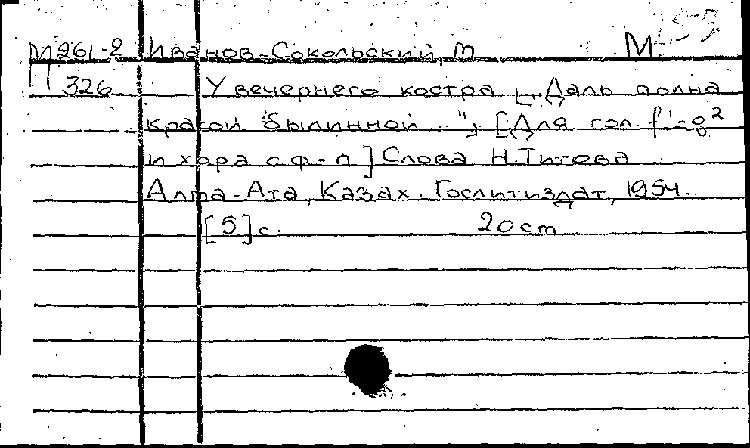 М 261-2 Иванов-Сокольский, М М
П 326 У вечернего костра ["Даль полна
красой былинной..."]; [Для гол. f¹-g²
и хора с ф-п.] Слова Н. Титова
Алма-Ата, Казах. Гослитиздат, 1954.
[5] с. 20 cm